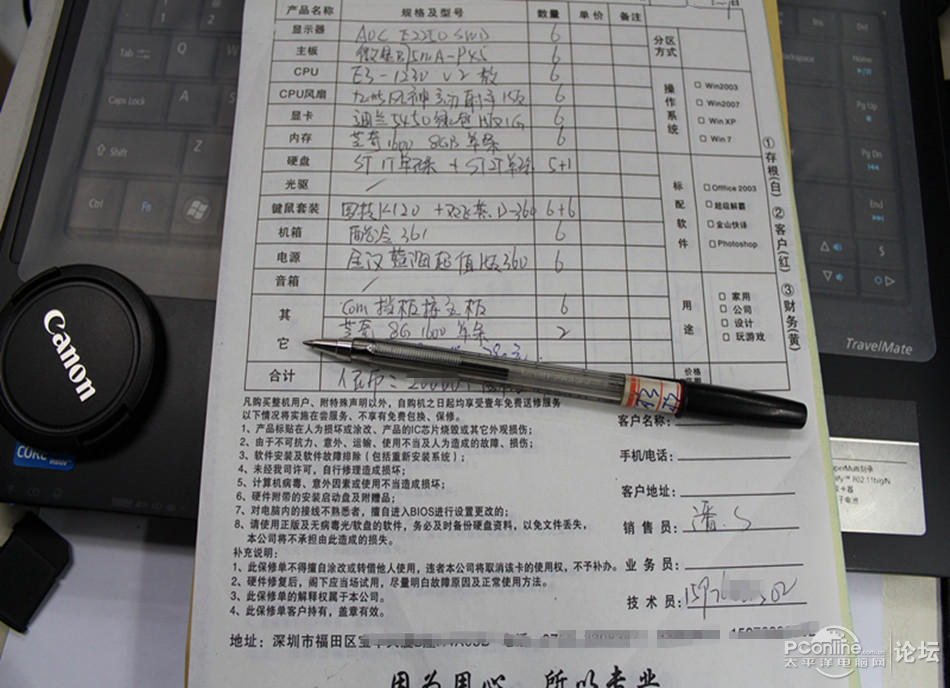 产品名称 规格及型号 数量 单价 备注
显示器 AOC E2250SWD 6
主板 6
CPU E3-1230 V2 散 6
CPU风扇 6
显卡 5450 1G 6
内存 芝奇 1600 8GB 单条 6
硬盘 ST 1T单碟 + ST 2T单碟 5+1
光驱 /
键鼠套装 K120 + 6+6
机箱 酷冷 361 6
电源 全汉蓝海超值版360 6
音箱 /
其它
com 挡板接主板 6
芝奇 8G 1600 单条 2
合计 人民币:
分区方式
操作系统
□ Win2003
□ Win2007
□ Win XP
□ Win 7
标配软件
□ Offfice 2003
□ 超级解霸
□ 金山快译
□ Photoshop
用途
□ 家用
□ 公司
□ 设计
□ 玩游戏
价格
①存根(白) ②客户(红) ③财务(黄)
凡购买整机用户、附特殊声明以外,自购机之日起均享受壹年免费送修服务
以下情况将实施在尝服务、不享有免费包换、保修。
1、产品标贴在人为损坏或涂改、产品的IC芯片烧毁或其它外观损伤;
2、由于不可抗力、意外、运输、使用不当及人为造成的故障、损伤;
3、软件安装及软件故障排除(包括重新安装系统);
4、未经我司许可,自行修理造成损坏;
5、计算机病毒、意外因素或使用不当造成损坏;
6、硬件附带的安装启动盘及附赠品;
7、对电脑内的接线不熟悉者,擅自进入BIOS进行设置更改的;
8、请使用正版及无病毒光/软盘的软件,务必及时备份硬盘资料,以免文件丢失,
本公司将不承担由此造成的损失。
补充说明:
1、此保修单不得擅自涂改或转借他人使用,违者本公司将取消该卡的使用权,不予补办。
2、硬件修复后,阁下应当场试用,尽量明白故障原因及正常使用方法。
3、此保修单的解释权属于本公司。
4、此保修单客户持有,盖章有效。
客户名称:
手机电话:
客户地址:
销售员:
业务员:
技术员:
地址:深圳市福田区宝
因为用心 所以专业
Canon
TravelMate
Tab
Q
W
Caps Lock
A
S
Shift
Z
Ctrl
Fn
Home
Pg Up
Pg Dn
End
CORE
802.11b/g/N
PConline.com.cn
太平洋电脑网
论坛